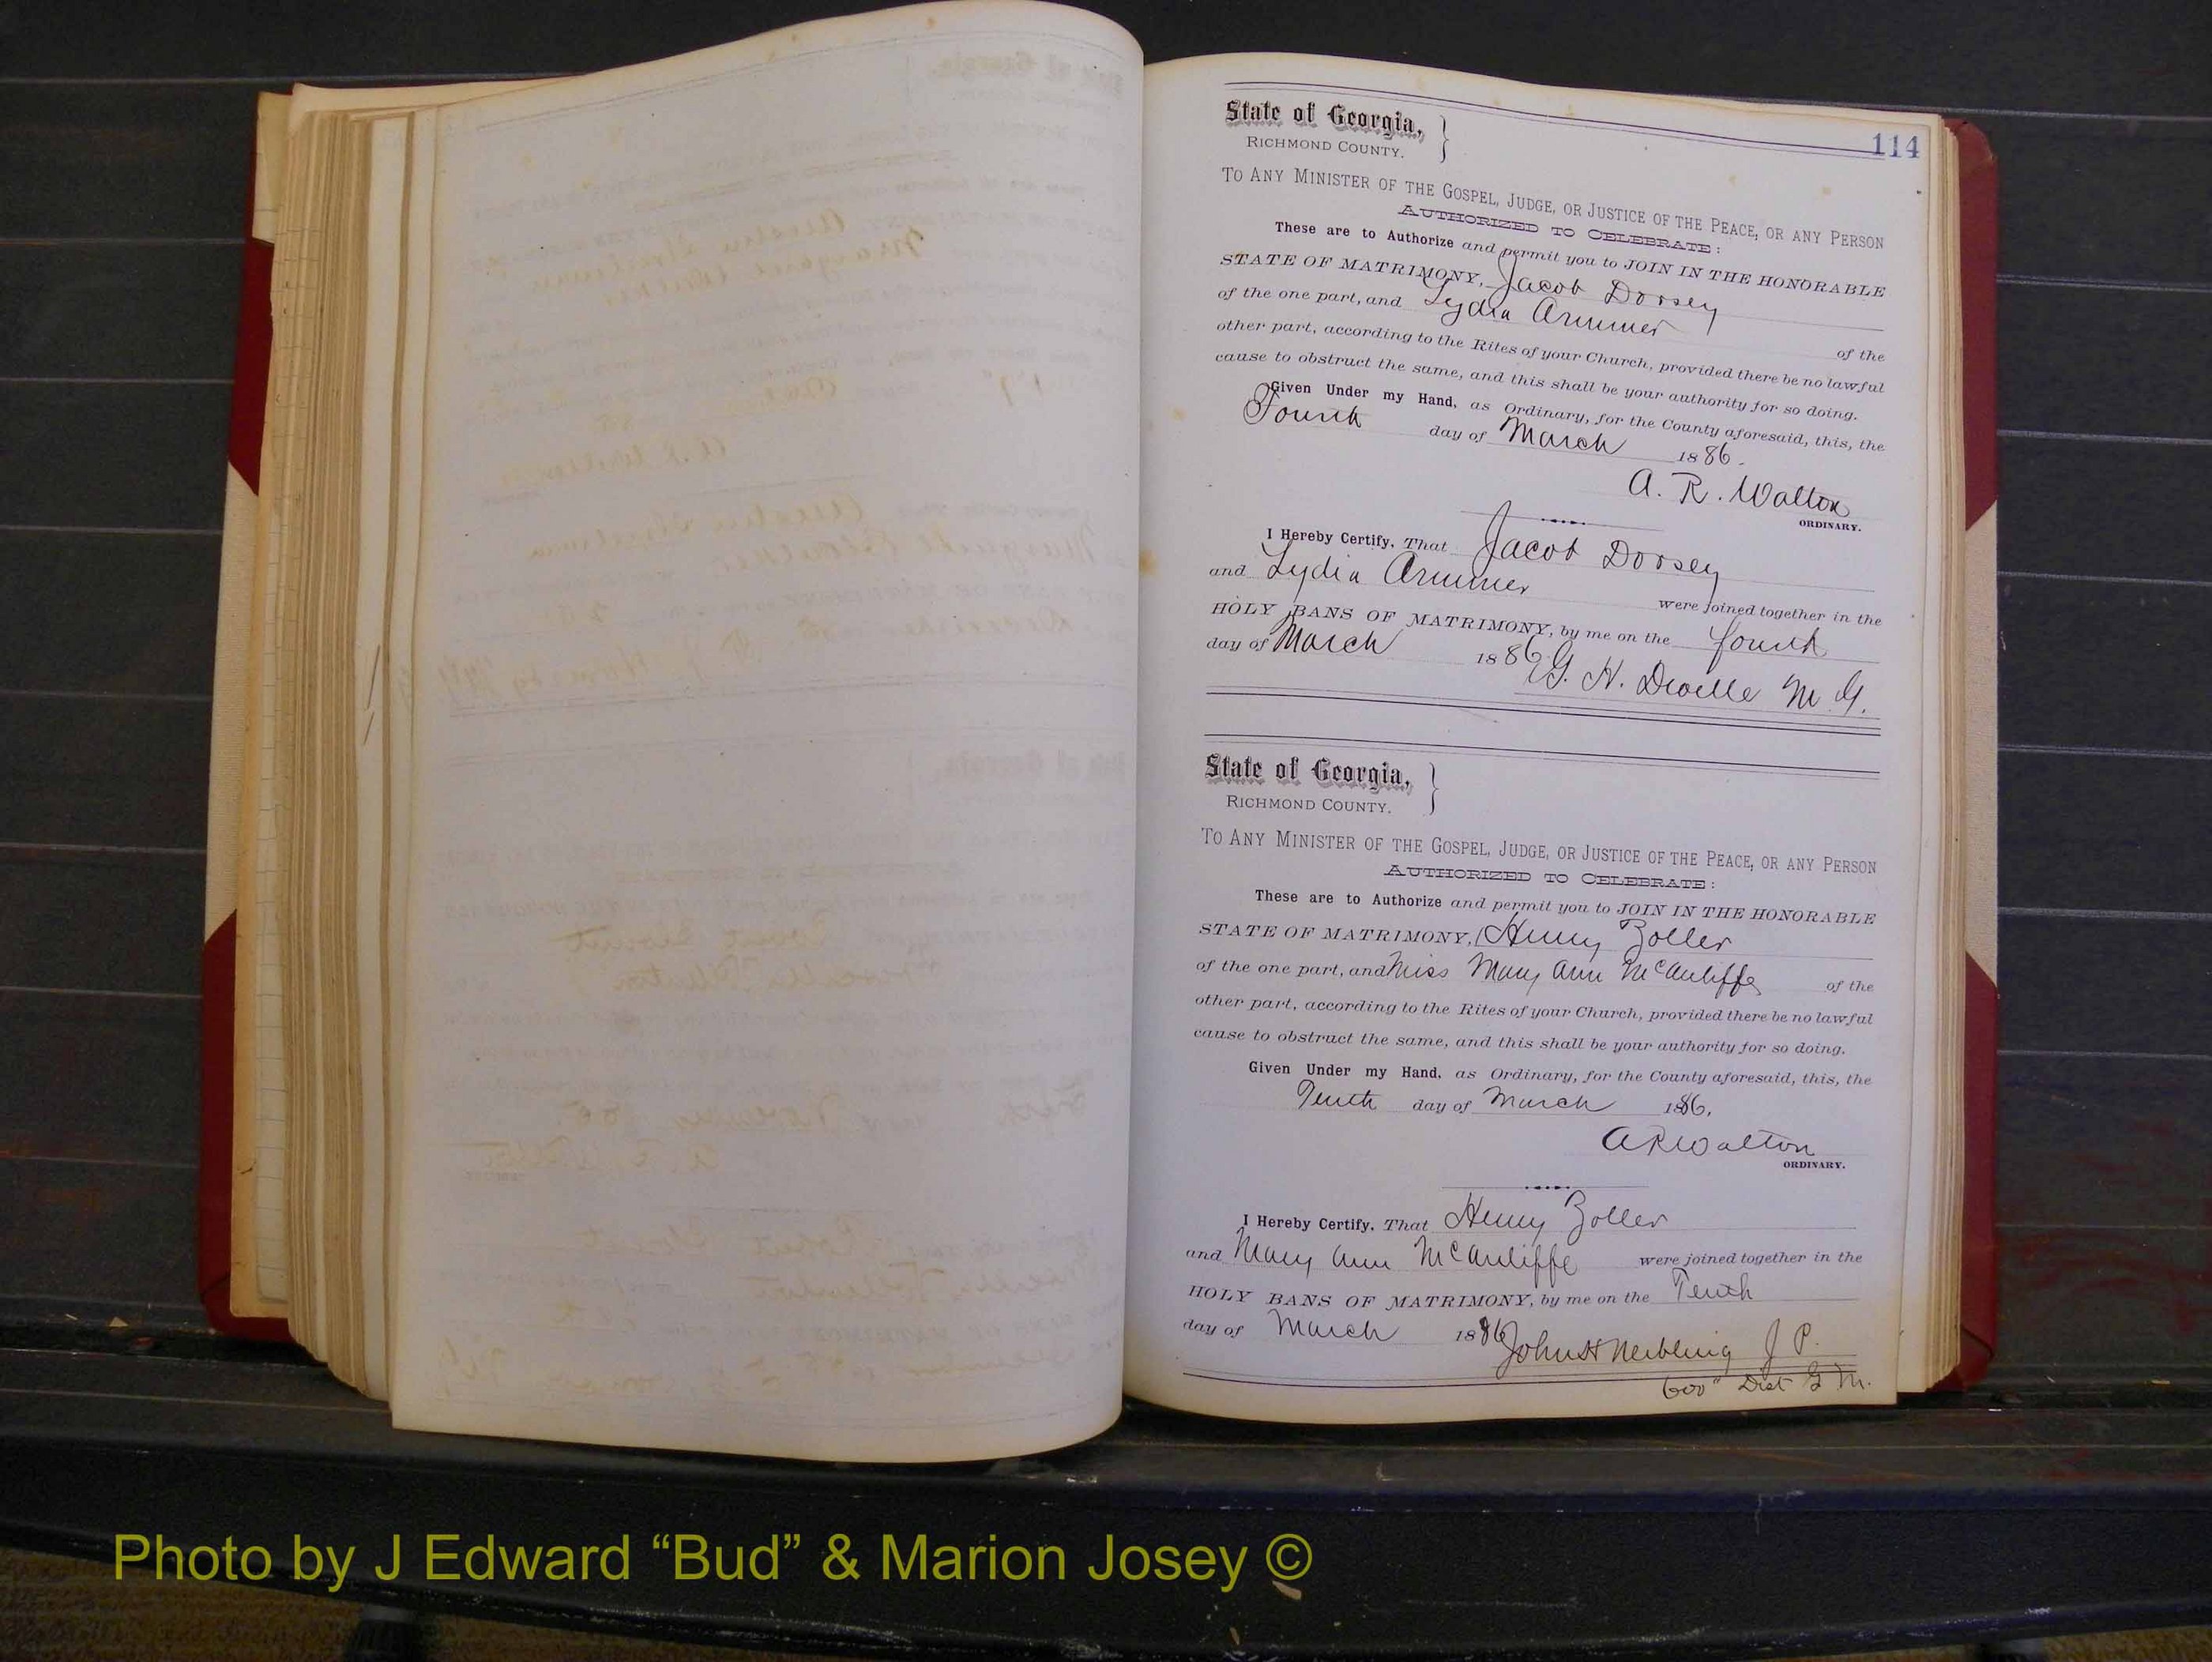 114
State of Georgia,
RICHMOND COUNTY.
TO ANY MINISTER OF THE GOSPEL, JUDGE, OR JUSTICE OF THE PEACE, OR ANY PERSON
AUTHORIZED TO CELEBRATE:
These are to Authorize and permit you to JOIN IN THE HONORABLE
STATE OF MATRIMONY, Jacob Dorsey
of the one part, and Lydia Armmer of the
other part, according to the Rites of your Church, provided there be no lawful
cause to obstruct the same, and this shall be your authority for so doing.
Given Under my Hand, as Ordinary, for the County aforesaid, this, the
Fourth day of March 1886.
A. R. Walton
ORDINARY.
I Hereby Certify, That Jacob Dorsey
and Lydia Armmer were joined together in the
HOLY BANS OF MATRIMONY, by me on the fourth
day of March 1886
G. H. Dwelle M. G.
State of Georgia,
RICHMOND COUNTY.
TO ANY MINISTER OF THE GOSPEL, JUDGE, OR JUSTICE OF THE PEACE, OR ANY PERSON
AUTHORIZED TO CELEBRATE:
These are to Authorize and permit you to JOIN IN THE HONORABLE
STATE OF MATRIMONY, Henry Zoller
of the one part, and Miss Mary Ann McAuliffe of the
other part, according to the Rites of your Church, provided there be no lawful
cause to obstruct the same, and this shall be your authority for so doing.
Given Under my Hand, as Ordinary, for the County aforesaid, this, the
Tenth day of March 1886,
A R Walton
ORDINARY.
I Hereby Certify, That Henry Zoller
and Mary Ann McAuliffe were joined together in the
HOLY BANS OF MATRIMONY, by me on the Tenth
day of March 1886
John H Neibling J P.
600" Dist G M.
Photo by J Edward “Bud” & Marion Josey ©